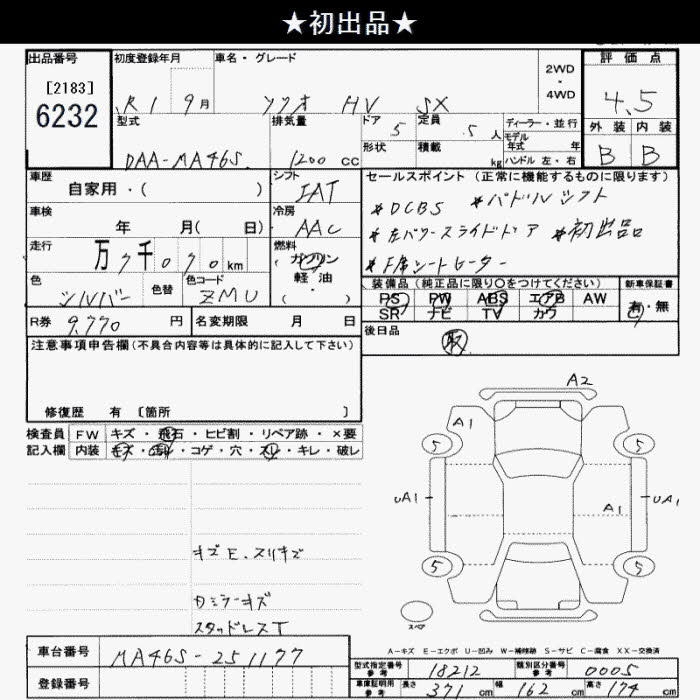 ★初出品★
出品番号
[2183]
6232
初度登録年月
R1 9月
車名・グレード
ソリオ HV SX
2WD
・
4WD
評価点
4.5
外装 内装
B B
型式
DAA-MA46S
排気量
1200 cc
ドア 5
定員 5人
ディーラー・並行
モデル年式 年
形状
積載 kg
ハンドル 左・右
車歴
自家用・( )
シフト
IAT
セールスポイント (正常に機能するものに限ります)
※DCBS ※パドルシフト
※左パワースライドドア ※初出品
※F席シートヒーター
車検
年 月( 日)
冷房
AAC
走行
万7千070km
燃料
ガソリン
軽油
( ・ )
色
シルバー
色替
色コード
ZMU
装備品 (純正品に限り○をつけてください)
新車保証書
PS PW ABS エアB AW
SR ナビ TV カワ
有・無
R券 9,770 円
名変期限 月 日
後日品
取
注意事項申告欄 (不具合内容等は具体的に記入して下さい)
修復歴 有 [箇所 ]
検査員 FW キズ・飛石・ヒビ割・リペア跡・×要
記入欄 内装 キズ・汚れ・コゲ・穴・スレ・キレ・破レ
A2
A1
5 5
UA1 A1 UA1
5 5
スペア
キズE.スリキズ
カミラーキズ
スタッドレスT
A-キズ E-エクボ U-凹み W-補修跡 S-サビ C-腐食 XX-交換済
車台番号 MA46S-251177
登録番号
型式指定番号 参考 18212
類別区分番号 参考 0005
車庫証明用 参考 長さ 371 cm 幅 162 cm 高さ 174 cm